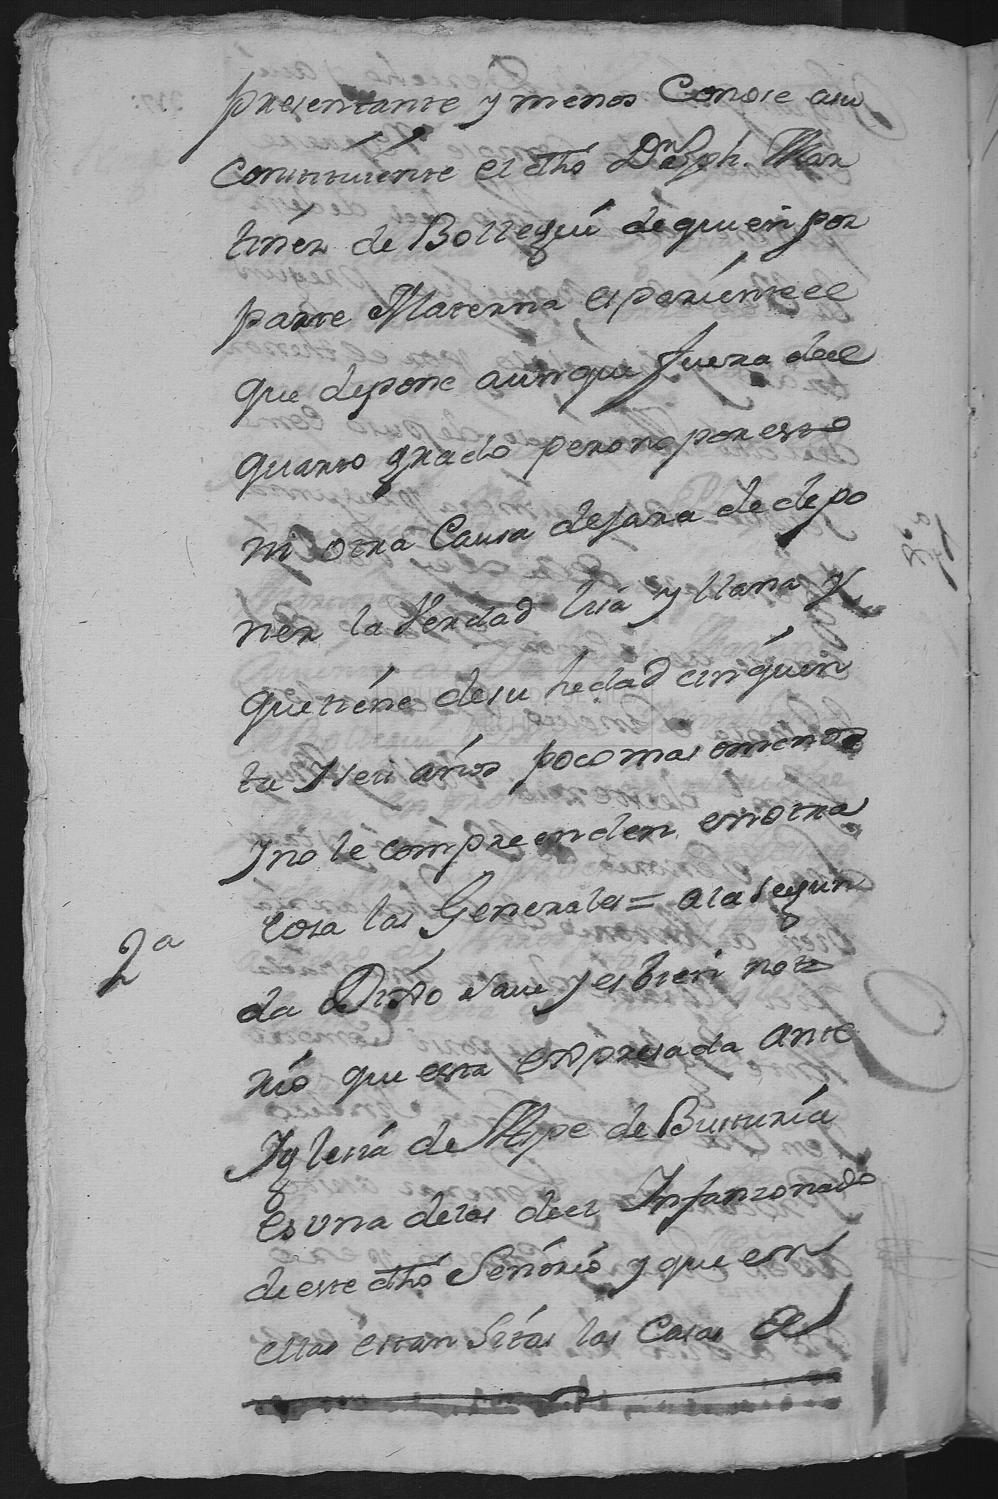 presentante y menos Conose asu
Constituiente el dho Dn Jph. Mar
tinez de Bolleguí de quien por
parte Materna es pariente el
que depone aunque fuera del
quarto grado pero no por esto
ni otra Causa dejara de depo
ner la Verdad lisa y llana y
que tiene de su hedad cinquen
ta y seis años poco mas o menos
y no le compreenden en otra
cosa las Generales = a la segun
2a
da Dixo save y es bien noto
rio que esta expresada Ante
Yglesia de Axpe de Busturia
es una de las de el Infanzonado
de este dho Señorio y que en
ellas estan Sitas las Casas